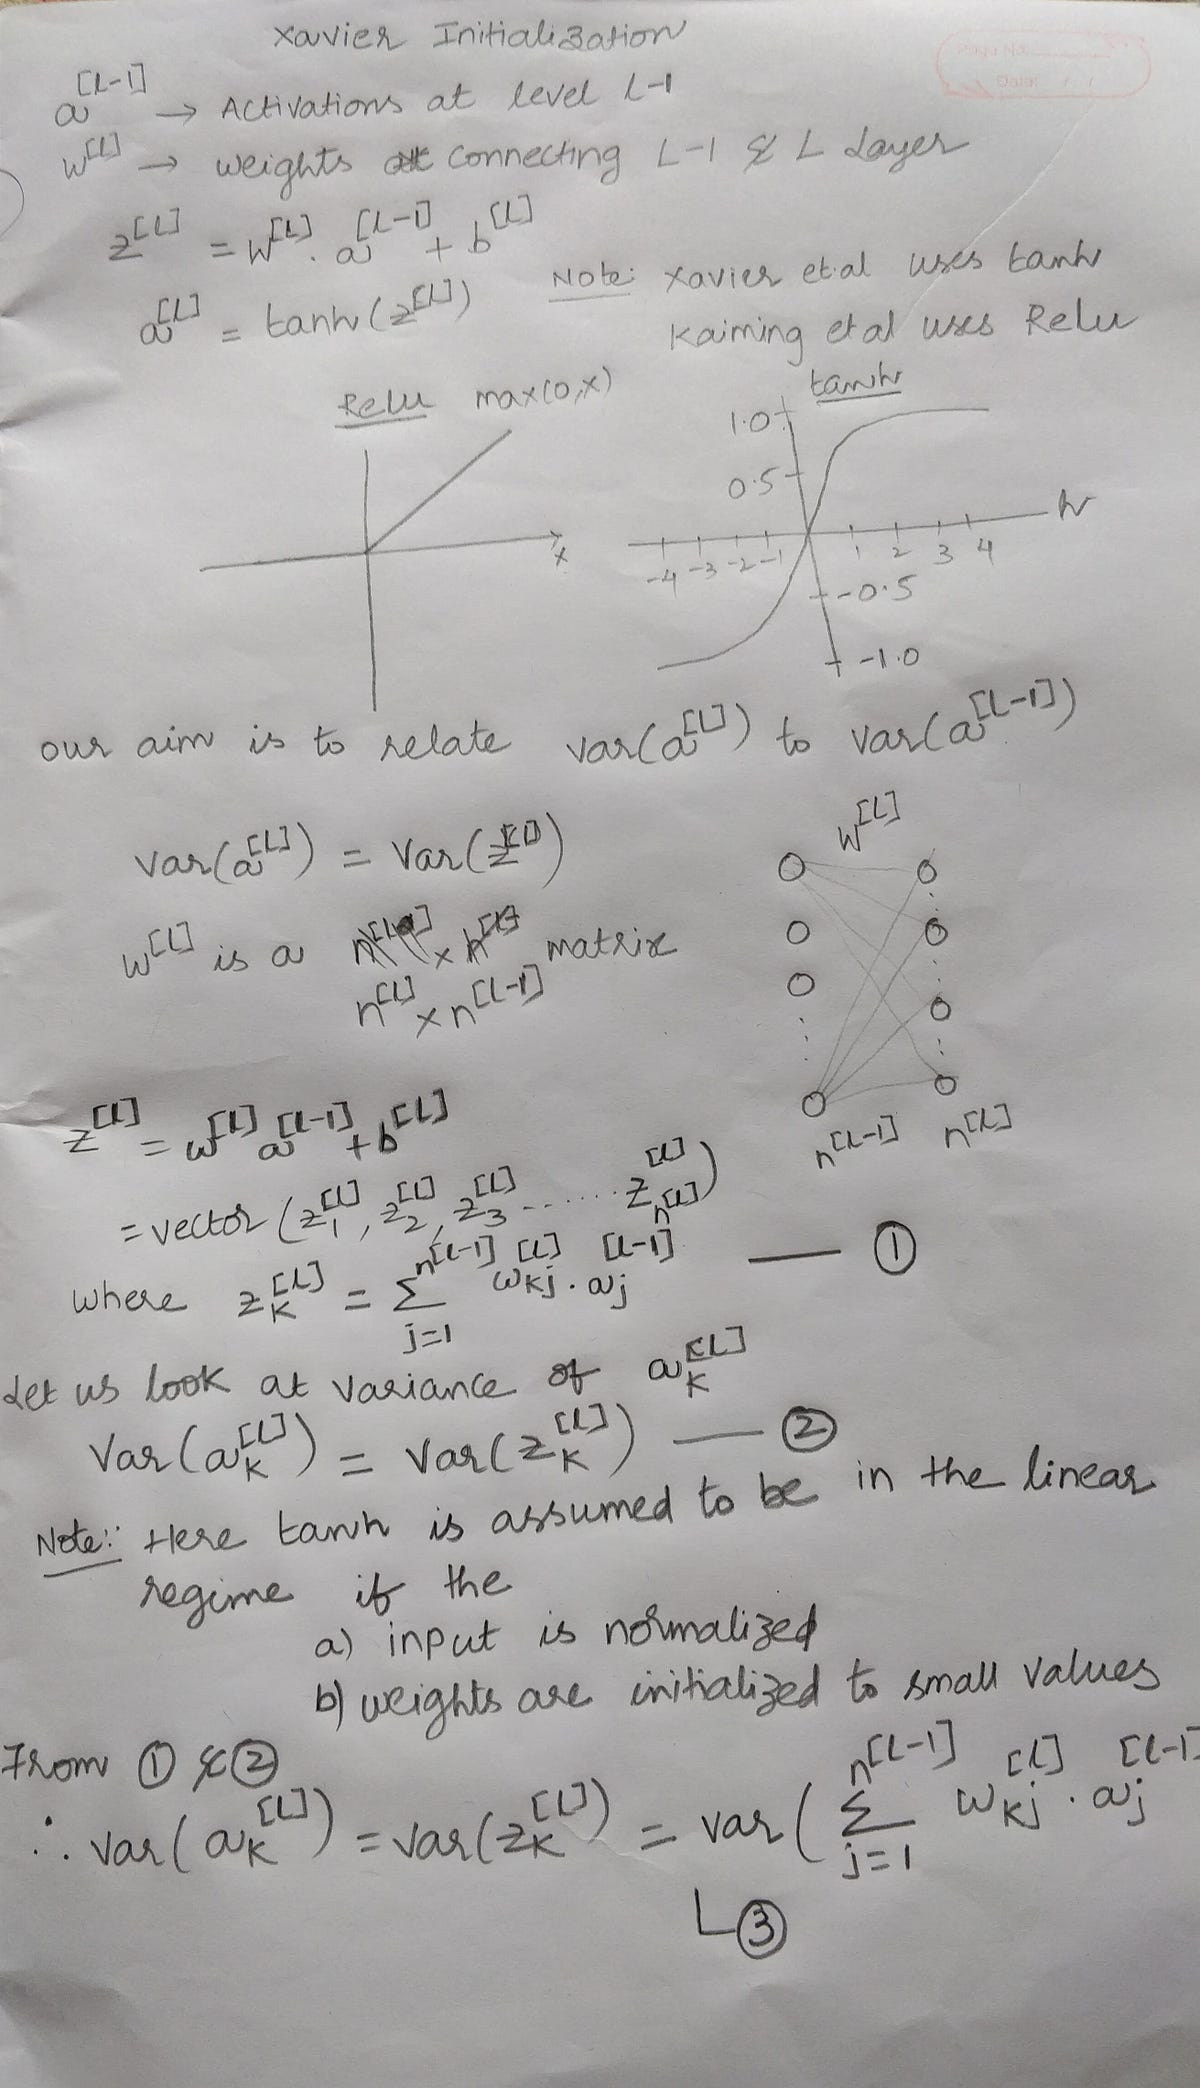 Xavier Initialization
a^[L-1] → Activations at level L-1
w^[L] → weights connecting L-1 & L Layer
z^[L] = w^[L] . a^[L-1] + b^[L]
a^[L] = tanh(z^[L])
Note: Xavier et al uses tanh
Kaiming et al uses Relu
Relu max(0,x)
x
tanh
1.0
0.5
h
-4 -3 -2 -1 1 2 3 4
-0.5
-1.0
our aim is to relate var(a^[L]) to var(a^[L-1])
Var(a^[L]) = Var(z^[L])
w^[L] is a matrix
n^[L] × n^[L-1]
w^[L]
n^[L-1] n^[L]
z^[L] = w^[L] a^[L-1] + b^[L]
= vector (z_1^[L], z_2^[L], z_3^[L] ........ z_n^[L]^[L])
where z_k^[L] = Σ_{j=1}^{n^[L-1]} w_kj^[L] . a_j^[L-1] — ①
Let us look at variance of a_k^[L]
Var(a_k^[L]) = Var(z_k^[L]) — ②
Note:: Here tanh is assumed to be in the linear
regime if the
a) input is normalized
b) weights are initialized to small values
From ① & ②
∴ var(a_k^[L]) = var(z_k^[L]) = var(Σ_{j=1}^{n^[L-1]} w_kj^[L] . a_j^[L-1]
③